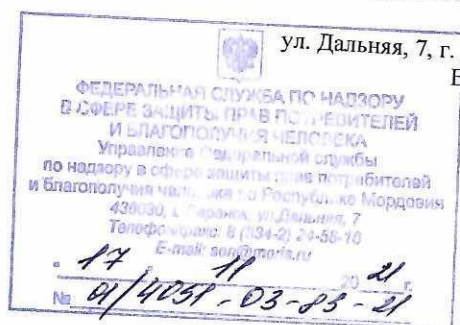 ул. Дальняя, 7, г.
ФЕДЕРАЛЬНАЯ СЛУЖБА ПО НАДЗОРУ
В СФЕРЕ ЗАЩИТЫ ПРАВ ПОТРЕБИТЕЛЕЙ
И БЛАГОПОЛУЧИЯ ЧЕЛОВЕКА
Управление Федеральной службы
по надзору в сфере защиты прав потребителей
и благополучия человека по Республике Мордовия
430030, г. Саранск, ул. Дальняя, 7
Телефон/факс: 8 (834-2) 24-58-10
E-mail: sen@moris.ru
" 17 " 11 20 21 г.
№ 01/4051-03-83-21